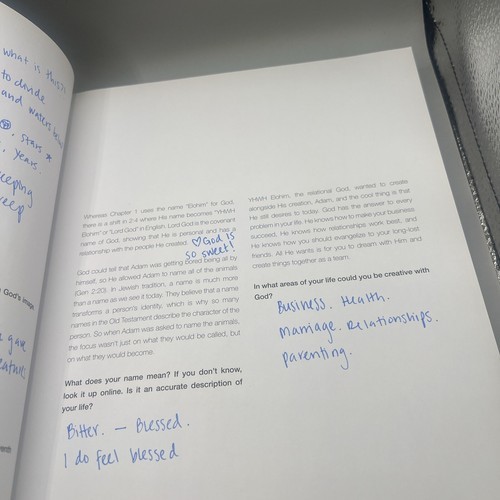 what is this?
to divide
and waters
stars *
years.
God's image,
gave
Whereas Chapter 1 uses the name "Elohim" for God,
there is a shift in 2:4 where His name becomes "YHWH
Elohim" or "Lord God" in English. Lord God is the covenant
name of God, showing that He is personal and has a
relationship with the people He created. ♡ God is
so sweet!
God could tell that Adam was getting bored being all by
himself, so He allowed Adam to name all of the animals
(Gen. 2:20). In Jewish tradition, a name is much more
than a name as we see it today. They believe that a name
transforms a person's identity, which is why so many
names in the Old Testament describe the character of the
person. So when Adam was asked to name the animals,
the focus wasn't just on what they would be called, but
on what they would become.
What does your name mean? If you don't know,
look it up online. Is it an accurate description of
your life?
Bitter. — Blessed.
I do feel blessed
YHWH Elohim, the relational God, wanted to create
alongside His creation, Adam, and the cool thing is that
He still desires to today. God has the answer to every
problem in your life. He knows how to make your business
succeed, He knows how relationships work best, and
He knows how you should evangelize to your long-lost
friends. All He wants is for you to dream with Him and
create things together as a team.
In what areas of your life could you be creative with
God?
Business. Health.
Marriage. Relationships.
Parenting.